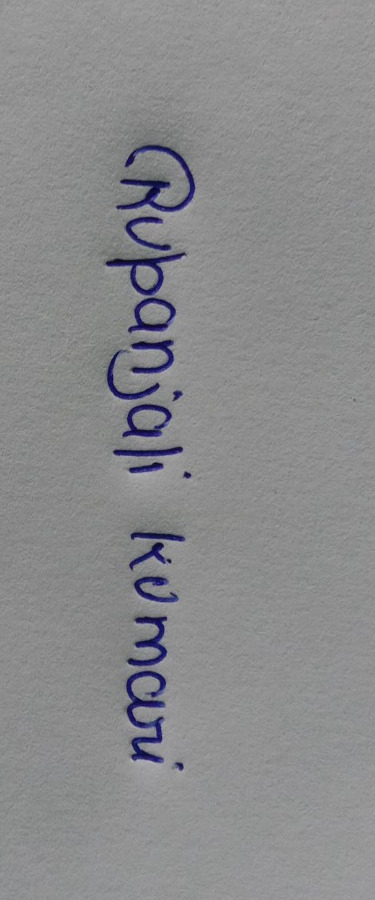 Rupanjali kumari